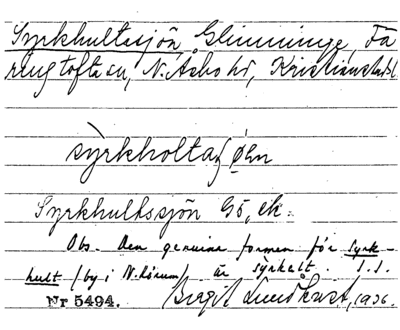 Syrkhultasjön, Glimminge, Fä
ringtofta sn, N. Åsbo hd, Kristianstads l.
syrkholtaʃøen
Syrkhultssjön Gö, ek.
Obs. Den genuina formen för Syrk-
hult (by i N. Rörum) är syrkalt. I.I.
Nr 5494. Birgit Lundkvist, 1936.